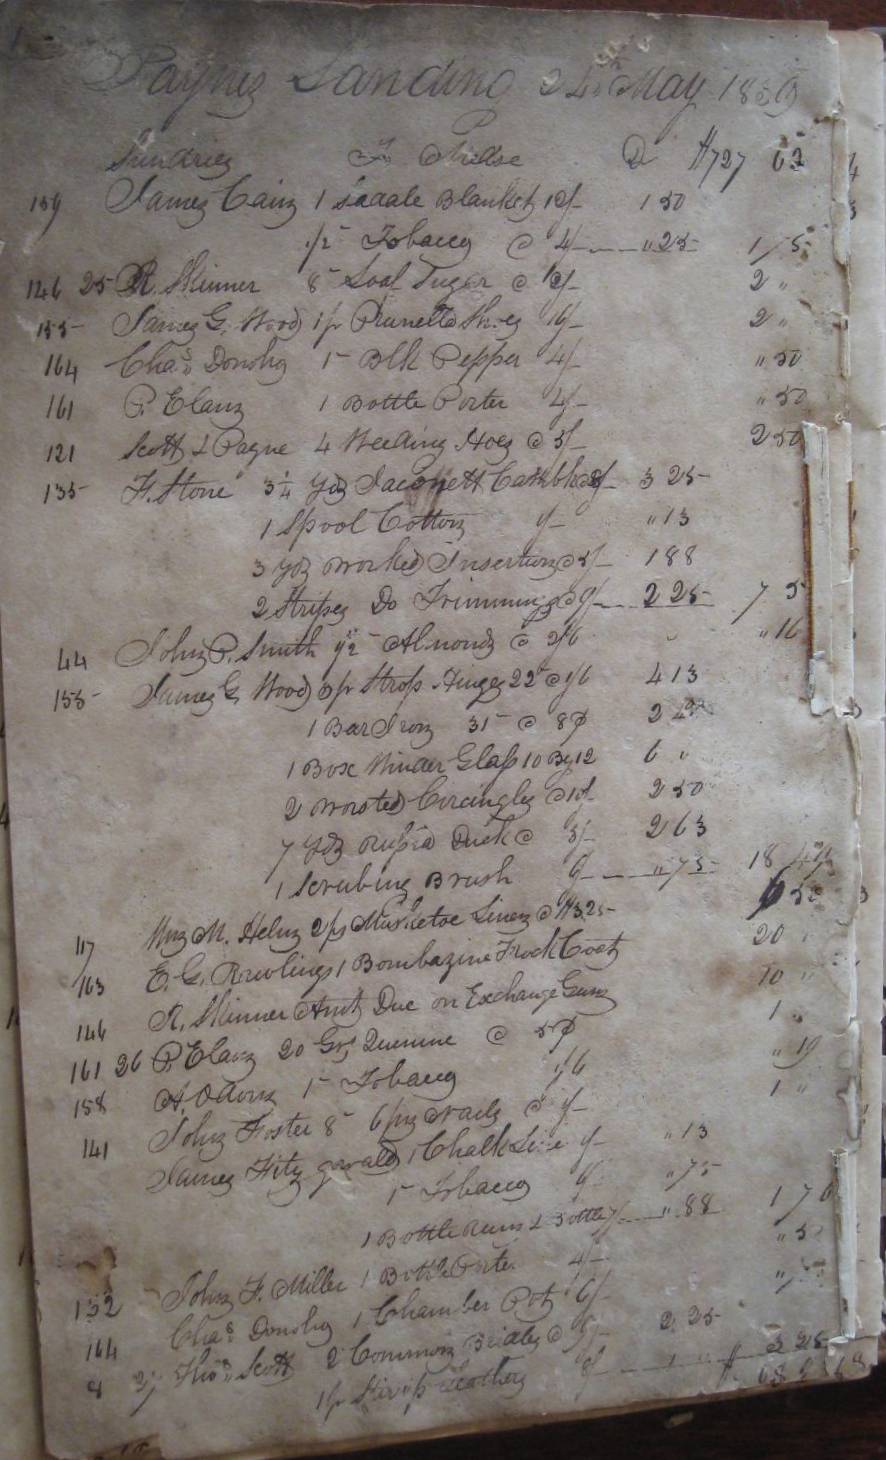 Paynes Landing 24th May 18
Sundries To Mdse D $727 62
159 James Cain 1 Saddle Blanket 12/- 1 50
1/2 - Tobacco @ 4/- " 25 1 75
146 25 R. Skinner 8 - Loaf Sugar @ 2/- 2 "
155 James G. Wood 1 pr Prunella Shoes 2 "
164 Chas. Donohoy 1 - Blk Pepper 4/- " 50
161 P. Elanz 1 Bottle Porter 4/- " 50
121 Scott & Payne 4 Weeding Hoes @ 5/- 2 50
135 F. Stone 3 1/4 Yds Jaconett Cambk @ 8/- 3 25
1 Spool Cotton 1/- " 13
3 Yds Worked Insertion @ 5/- 1 88
2 Stripes Do Trimming @ 9/- 2 25 7 5
44 John P. Smith 1/2 - Almonds @ 2/6 " 16
155 James G. Wood pr Strap Hinges 22 @ 1/6 4 13
1 Bar Iron 31 - @ 8¢ 2
1 Box Window Glass 10 By 12 6 "
2 Worsted Circingles @ 10/- 2 50
7 Yds Russia Duck @ 3/- 2 63
1 Scrubing Brush 6/- " 75 18
117 Wm M. Helm 2 ps Musketoe Linen @ $3.25 6 50
163 E. G. Rawlings 1 Bombazine Frock Coat 20 "
146 R. Skinner Amt Due on Exchange Guns 10 "
161 26 P. Elanz 20 Grs Quinine @ 5¢ 1 "
158 A. Odom 1 - Tobacco 1/6 " 19
141 John Foster 8 - 6 pny Nails @ 1/- 1 "
James Fitzgerald 1 Chalk Line 1/- " 13
1 - Tobacco 6/- " 75
1 Bottle Rum & Bottle 7/- " 88 1 76
132 John F. Miller 1 Bottle Porter 4/- " 5
164 Chas. Donohoy 1 Chamber Pot 6/- "
4 27 Thos. Scott 2 Common Bridles @ 9/- 2 25
1 pr Stirrup Leathers 8/- 1 " 3 25